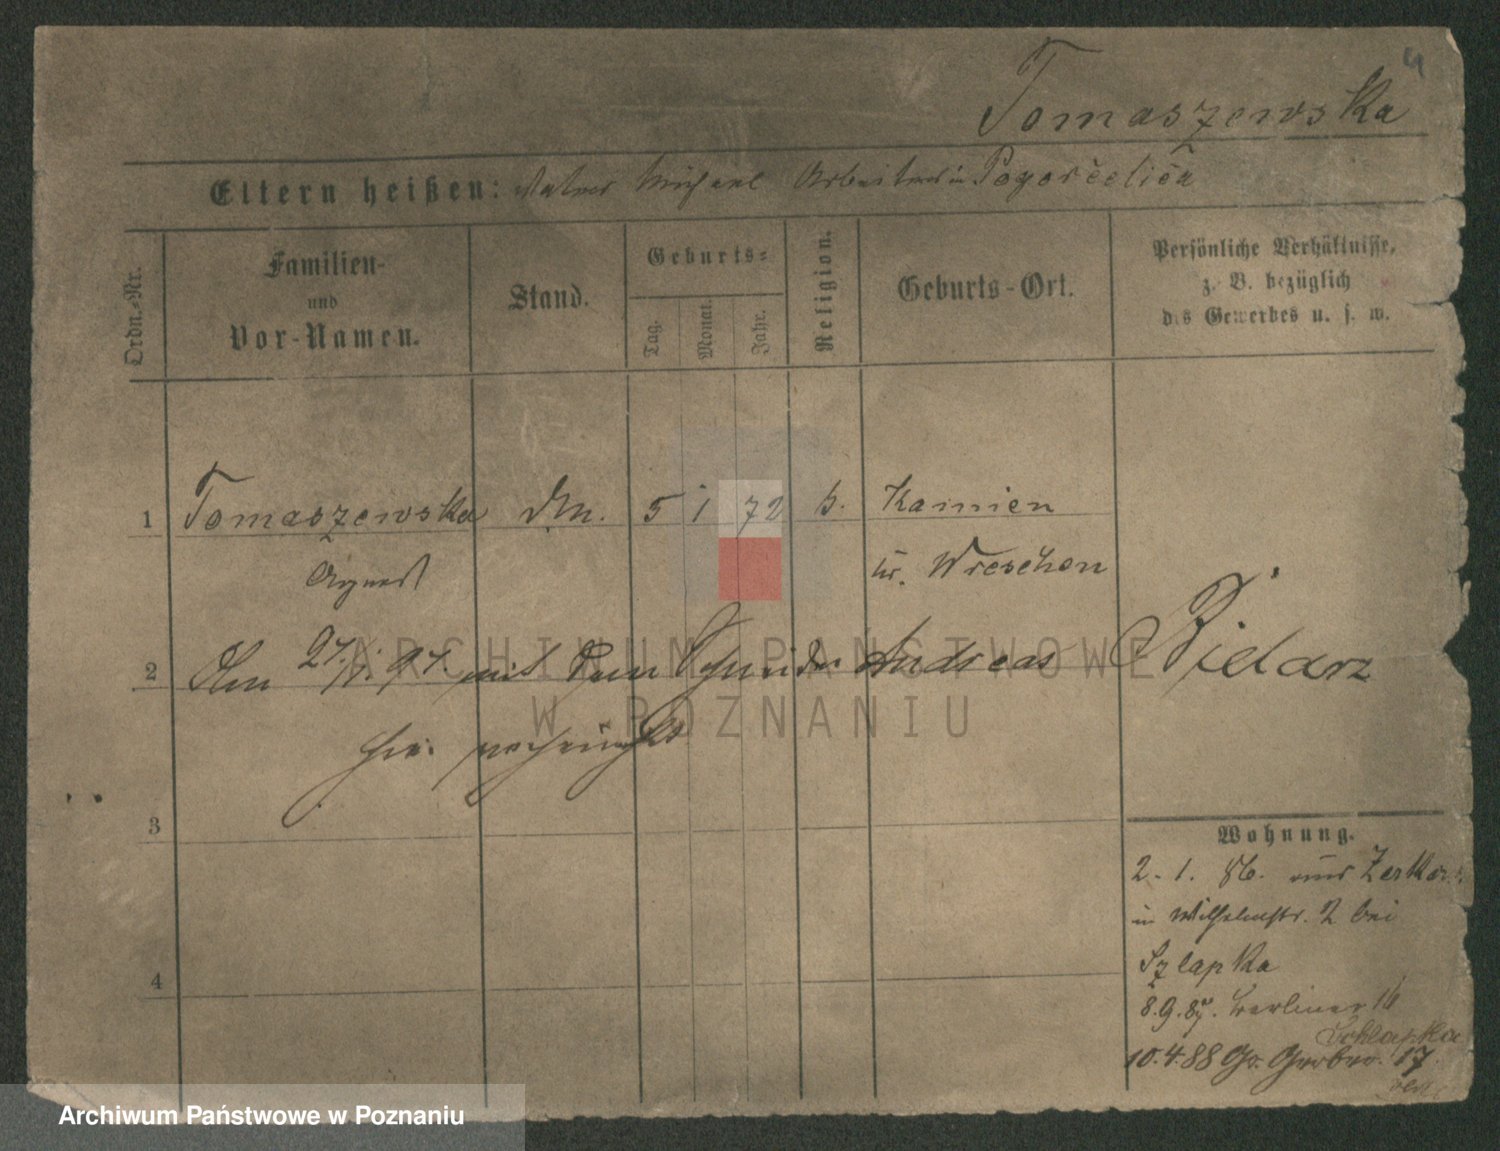 4
Tomaszewska
Eltern heißen: Vater Michael Arbeiter in Pogorzelica
Ordn.-Nr.
Familien-
und
Vor-Namen.
Stand.
Geburts-
Tag.
Monat.
Jahr.
Religion.
Geburts-Ort.
Persönliche Verhältnisse,
z. B. bezüglich
des Gewerbes u. s. w.
1 Tomaszewska 5 1 72 k. Kamien
Agnes Kr. Wreschen
2 Am 27. 94. mit dem Schneider Andreas Bielarz
hier
3
4
Wohnung.
2. 1. 86. aus Zerkow
in Wilhelmstr. 2 bei
Szlapka
8.9.87. Berliner 16
Schlapka
10.4.88 Gr. Gerber. 17
ARCHIWUM PAŃSTWOWE
W POZNANIU
Archiwum Państwowe w Poznaniu